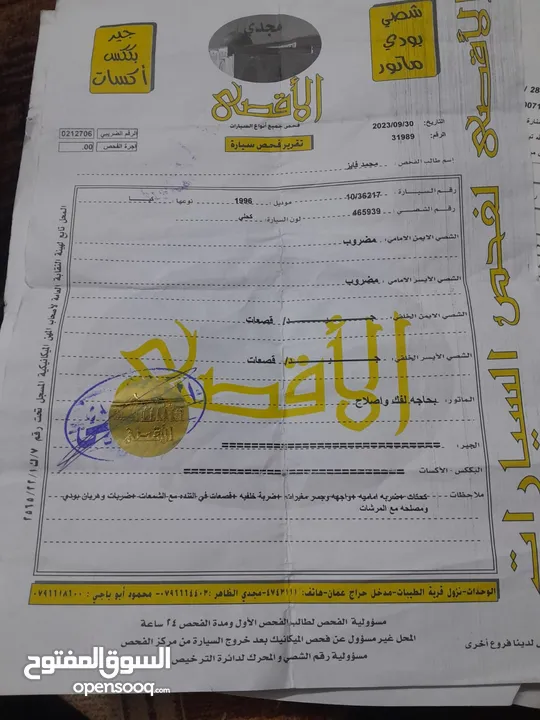 شصي
بودي
ماتور
مجدي
الأقصى
فحص جميع أنواع السيارات
تقرير فحص سيارة
جير
بكس
أكسات
التاريخ: 2023/09/30
الرقم: 31989
الرقم الضريبي 0212706
أجرة الفحص .00
إسم طالب الفحص : محمد فايز
رقم السيارة : 10/36217 موديل : 1996 نوعها : كيا
رقم الشصي : 465939 لون السيارة : كحلي
الشصي الأيمن الأمامي : مضروب
الشصي الأيسر الأمامي : مضروب
الشصي الأيمن الخلفي : جـــيـــد/ قصعات
الشصي الأيسر الخلفي : جـــيـــد/ قصعات
الماتور: بحاجه لفك واصلاح
الجير:
البككس الأكسات
ملاحظات كعكات + ضربه اماميه + واجهه وجسر مغيرات + ضربة خلفيه + قصعات في التنده مع الشمعات + ضربات وهريان بودي
ومصلحه مع المرشات
المحل تابع لهيئة النقابة العامة لأصحاب المهن الميكانيكية المسجل تحت رقم
الأقصى لفحص السيارات
الوحدات-نزول قرية الطيبات-مدخل حراج عمان-هاتف: ٤٧٤٣١١١-مجدي الظاهر: ٠٧٩٦٦٦٤٤٠٣- محمود أبو ياجي: ٠٧٩٦٦٦٨١٠٠
مسؤولية الفحص لطالب الفحص الأول ومدة الفحص ٢٤ ساعة
المحل غير مسؤول عن فحص الميكانيك بعد خروج السيارة من مركز الفحص
مسؤولية رقم الشصي و المحرك لدائرة الترخيص
لدينا فروع أخرى
السوق المفتوح
opensooq.com